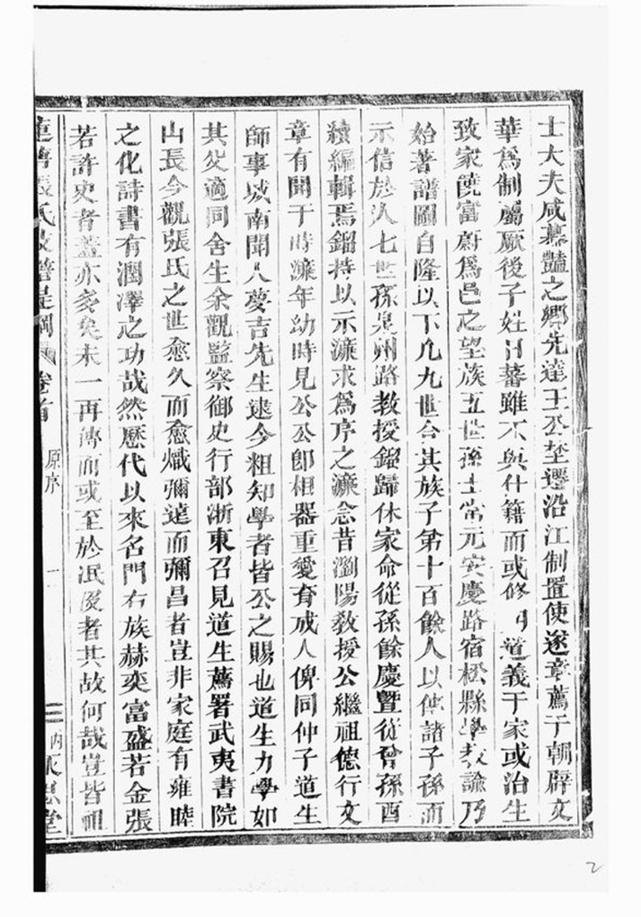 士大夫咸慕豔之鄉先達王丞埜遷沿江制置使遂章薦于朝辟文
華爲制屬厥後子姓日蕃雖不與仕籍而或修明道義于家或治生
致家饒富蔚爲邑之望族五世孫士常元安慶路宿松縣學教諭乃
始著譜圖自隆以下凡九世合其族子弟十百餘人以傳諸子孫而
示信於人七世孫泉州路教授鎦歸休家命從孫餘慶暨從曾孫酉
續編輯焉鎦持以示濂求爲序之濂念昔瀏陽教授公繼祖德行文
章有聞于時濂年幼時見公公卽相器重愛育成人俾同仲子道生
師事城南聞人夢吉先生逮今粗知學者皆公之賜也道生力學如
其父適同舍生余觀監察御史行部浙東召見道生薦署武夷書院
山長今觀張氏之世愈久而愈熾彌遠而彌昌者豈非家庭有雍睦
之化詩書有潤澤之功哉然歷代以來名門右族赫奕富盛若金張
若許史者蓋亦多矣未一再傳而或至於泯沒者其故何哉豈皆祖
張氏 譜 綱 卷首 原序 一 內 永思堂
2